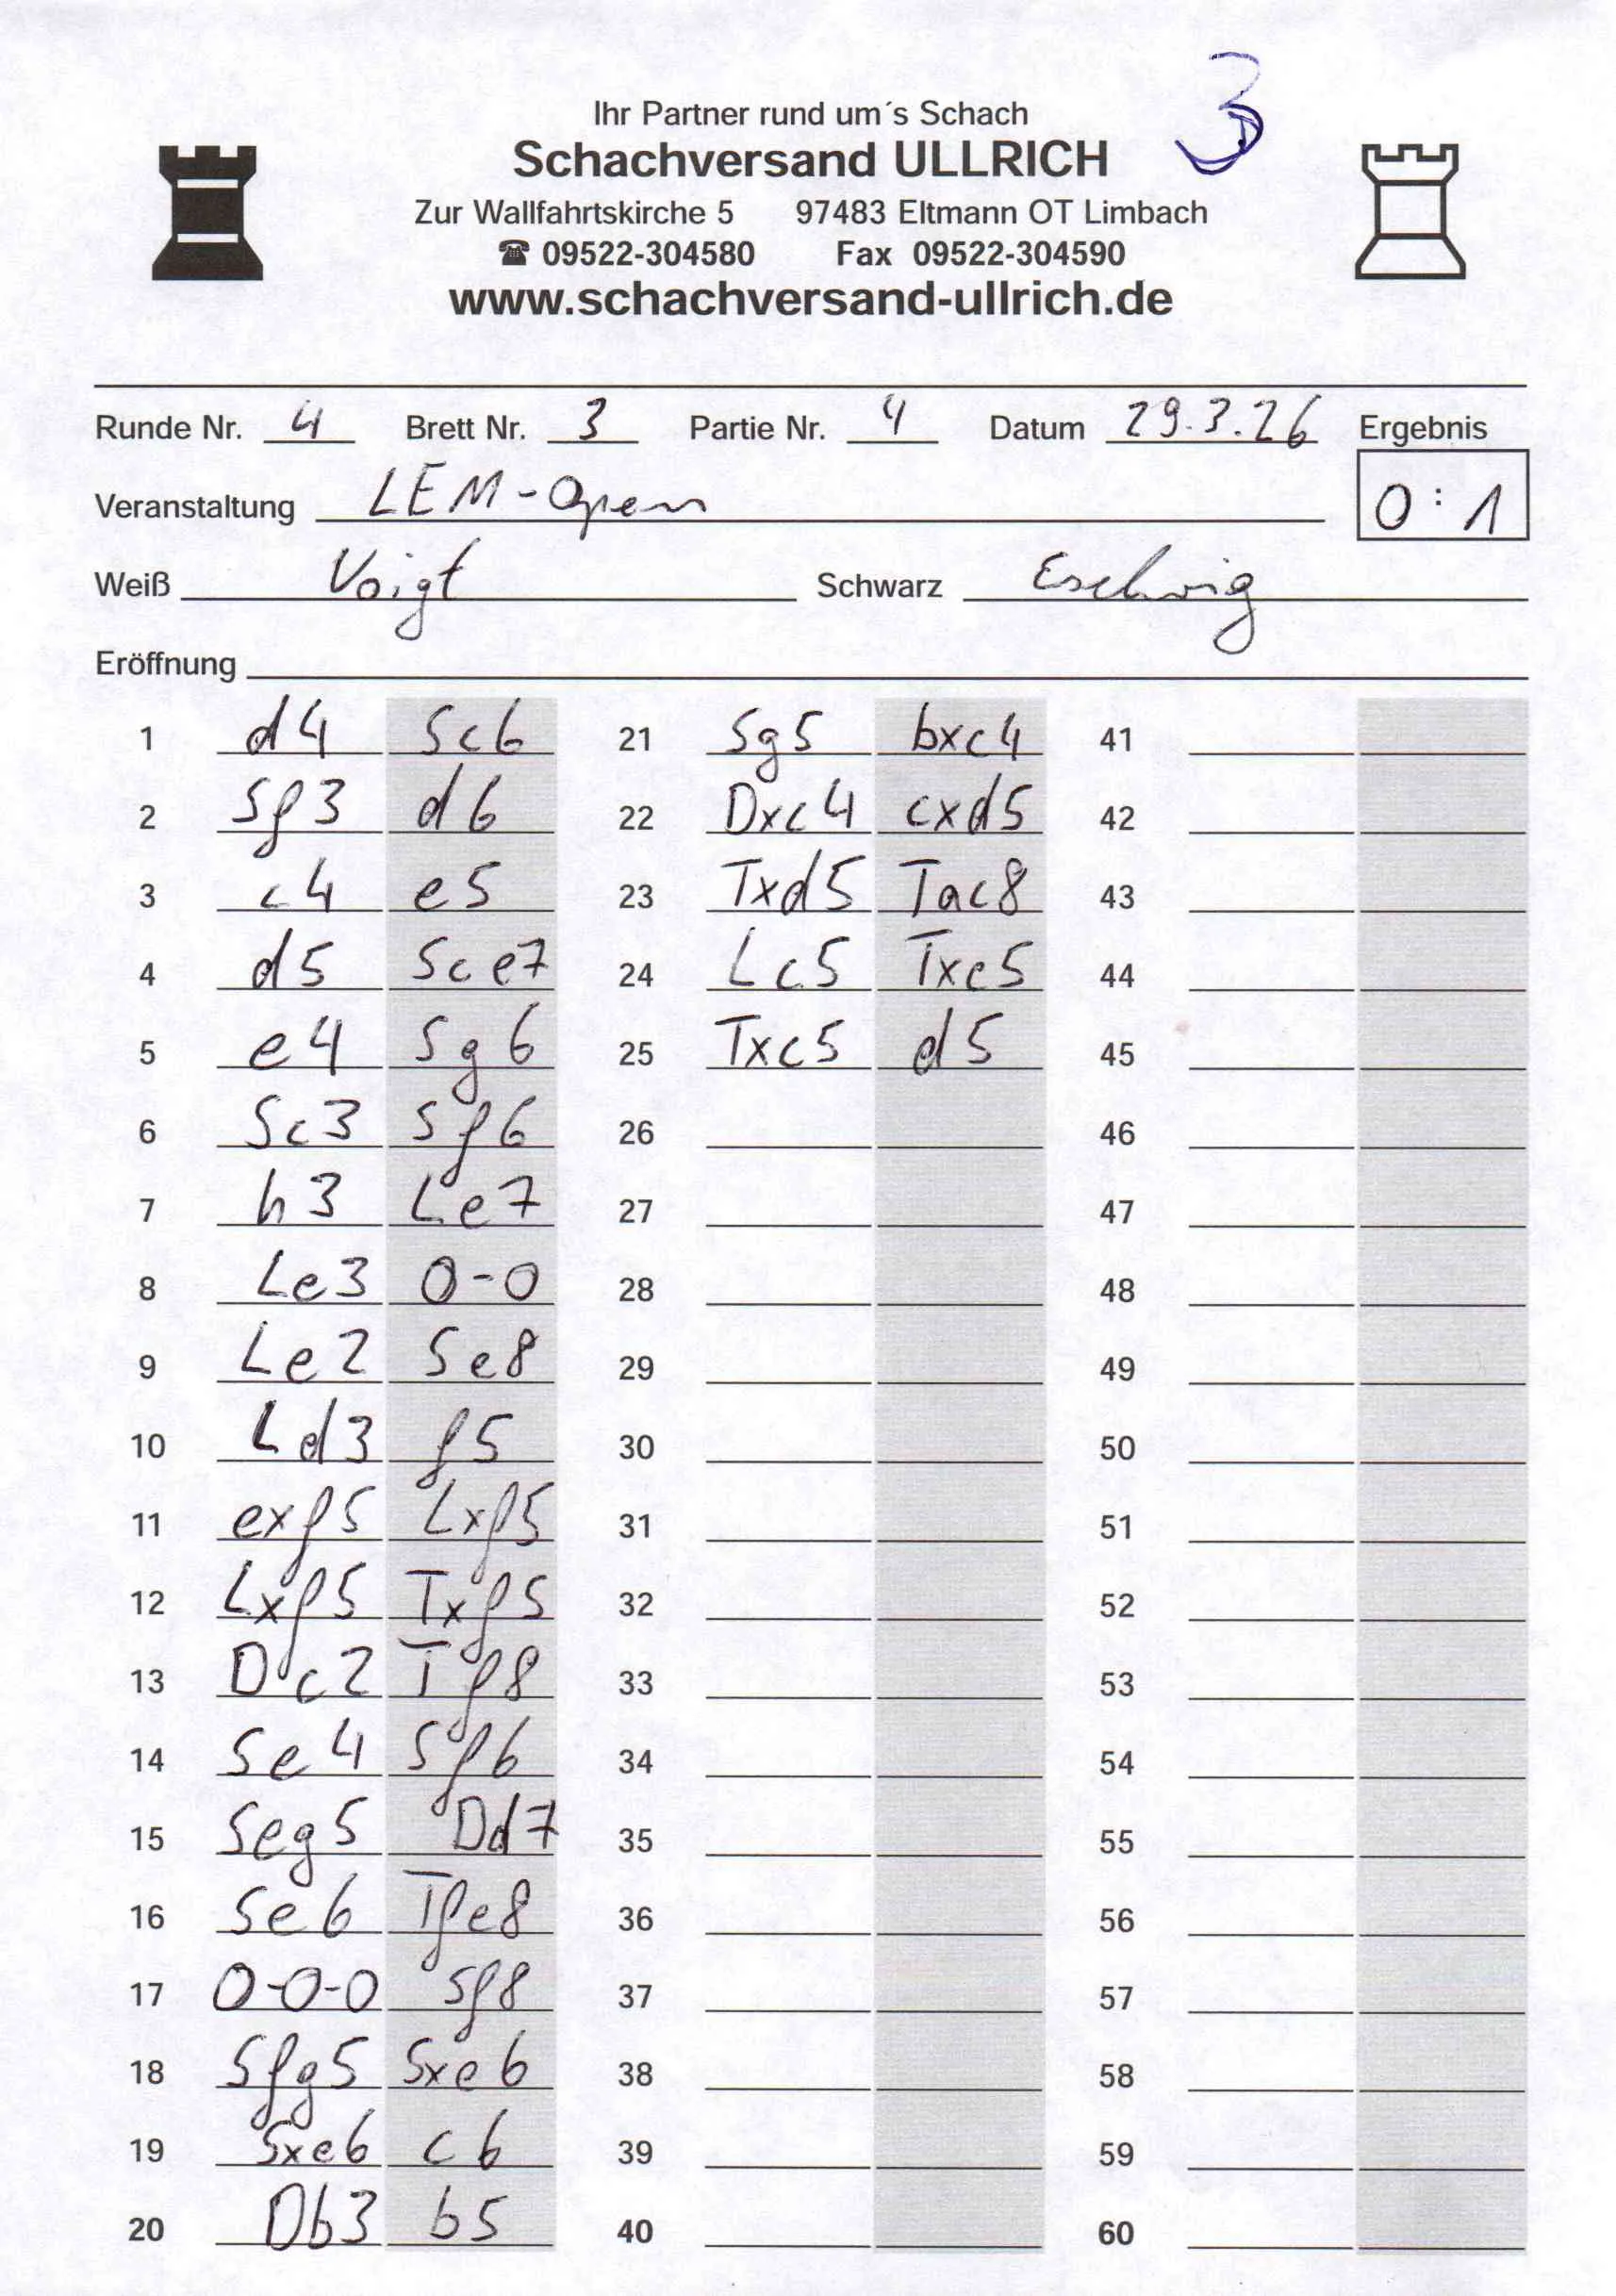 3
Ihr Partner rund um´s Schach
Schachversand ULLRICH
Zur Wallfahrtskirche 5 97483 Eltmann OT Limbach
☎ 09522-304580 Fax 09522-304590
www.schachversand-ullrich.de
Runde Nr. 4 Brett Nr. 3 Partie Nr. 4 Datum 29.3.26 Ergebnis
Veranstaltung LEM-Open 0:1
Weiß Voigt Schwarz Eschwig
Eröffnung
1 d4 Sc6 21 Sg5 bxc4 41
2 Sf3 d6 22 Dxc4 cxd5 42
3 c4 e5 23 Txd5 Tac8 43
4 d5 Sce7 24 Lc5 Txc5 44
5 e4 Sg6 25 Txc5 d5 45
6 Sc3 Sf6 26 46
7 h3 Le7 27 47
8 Le3 0-0 28 48
9 Le2 Se8 29 49
10 Ld3 f5 30 50
11 exf5 Lxf5 31 51
12 Lxf5 Txf5 32 52
13 Dc2 Tf8 33 53
14 Se4 Sf6 34 54
15 Seg5 Dd7 35 55
16 Se6 Tfe8 36 56
17 0-0-0 Sf8 37 57
18 Sfg5 Sxe6 38 58
19 Sxe6 c6 39 59
20 Db3 b5 40 60